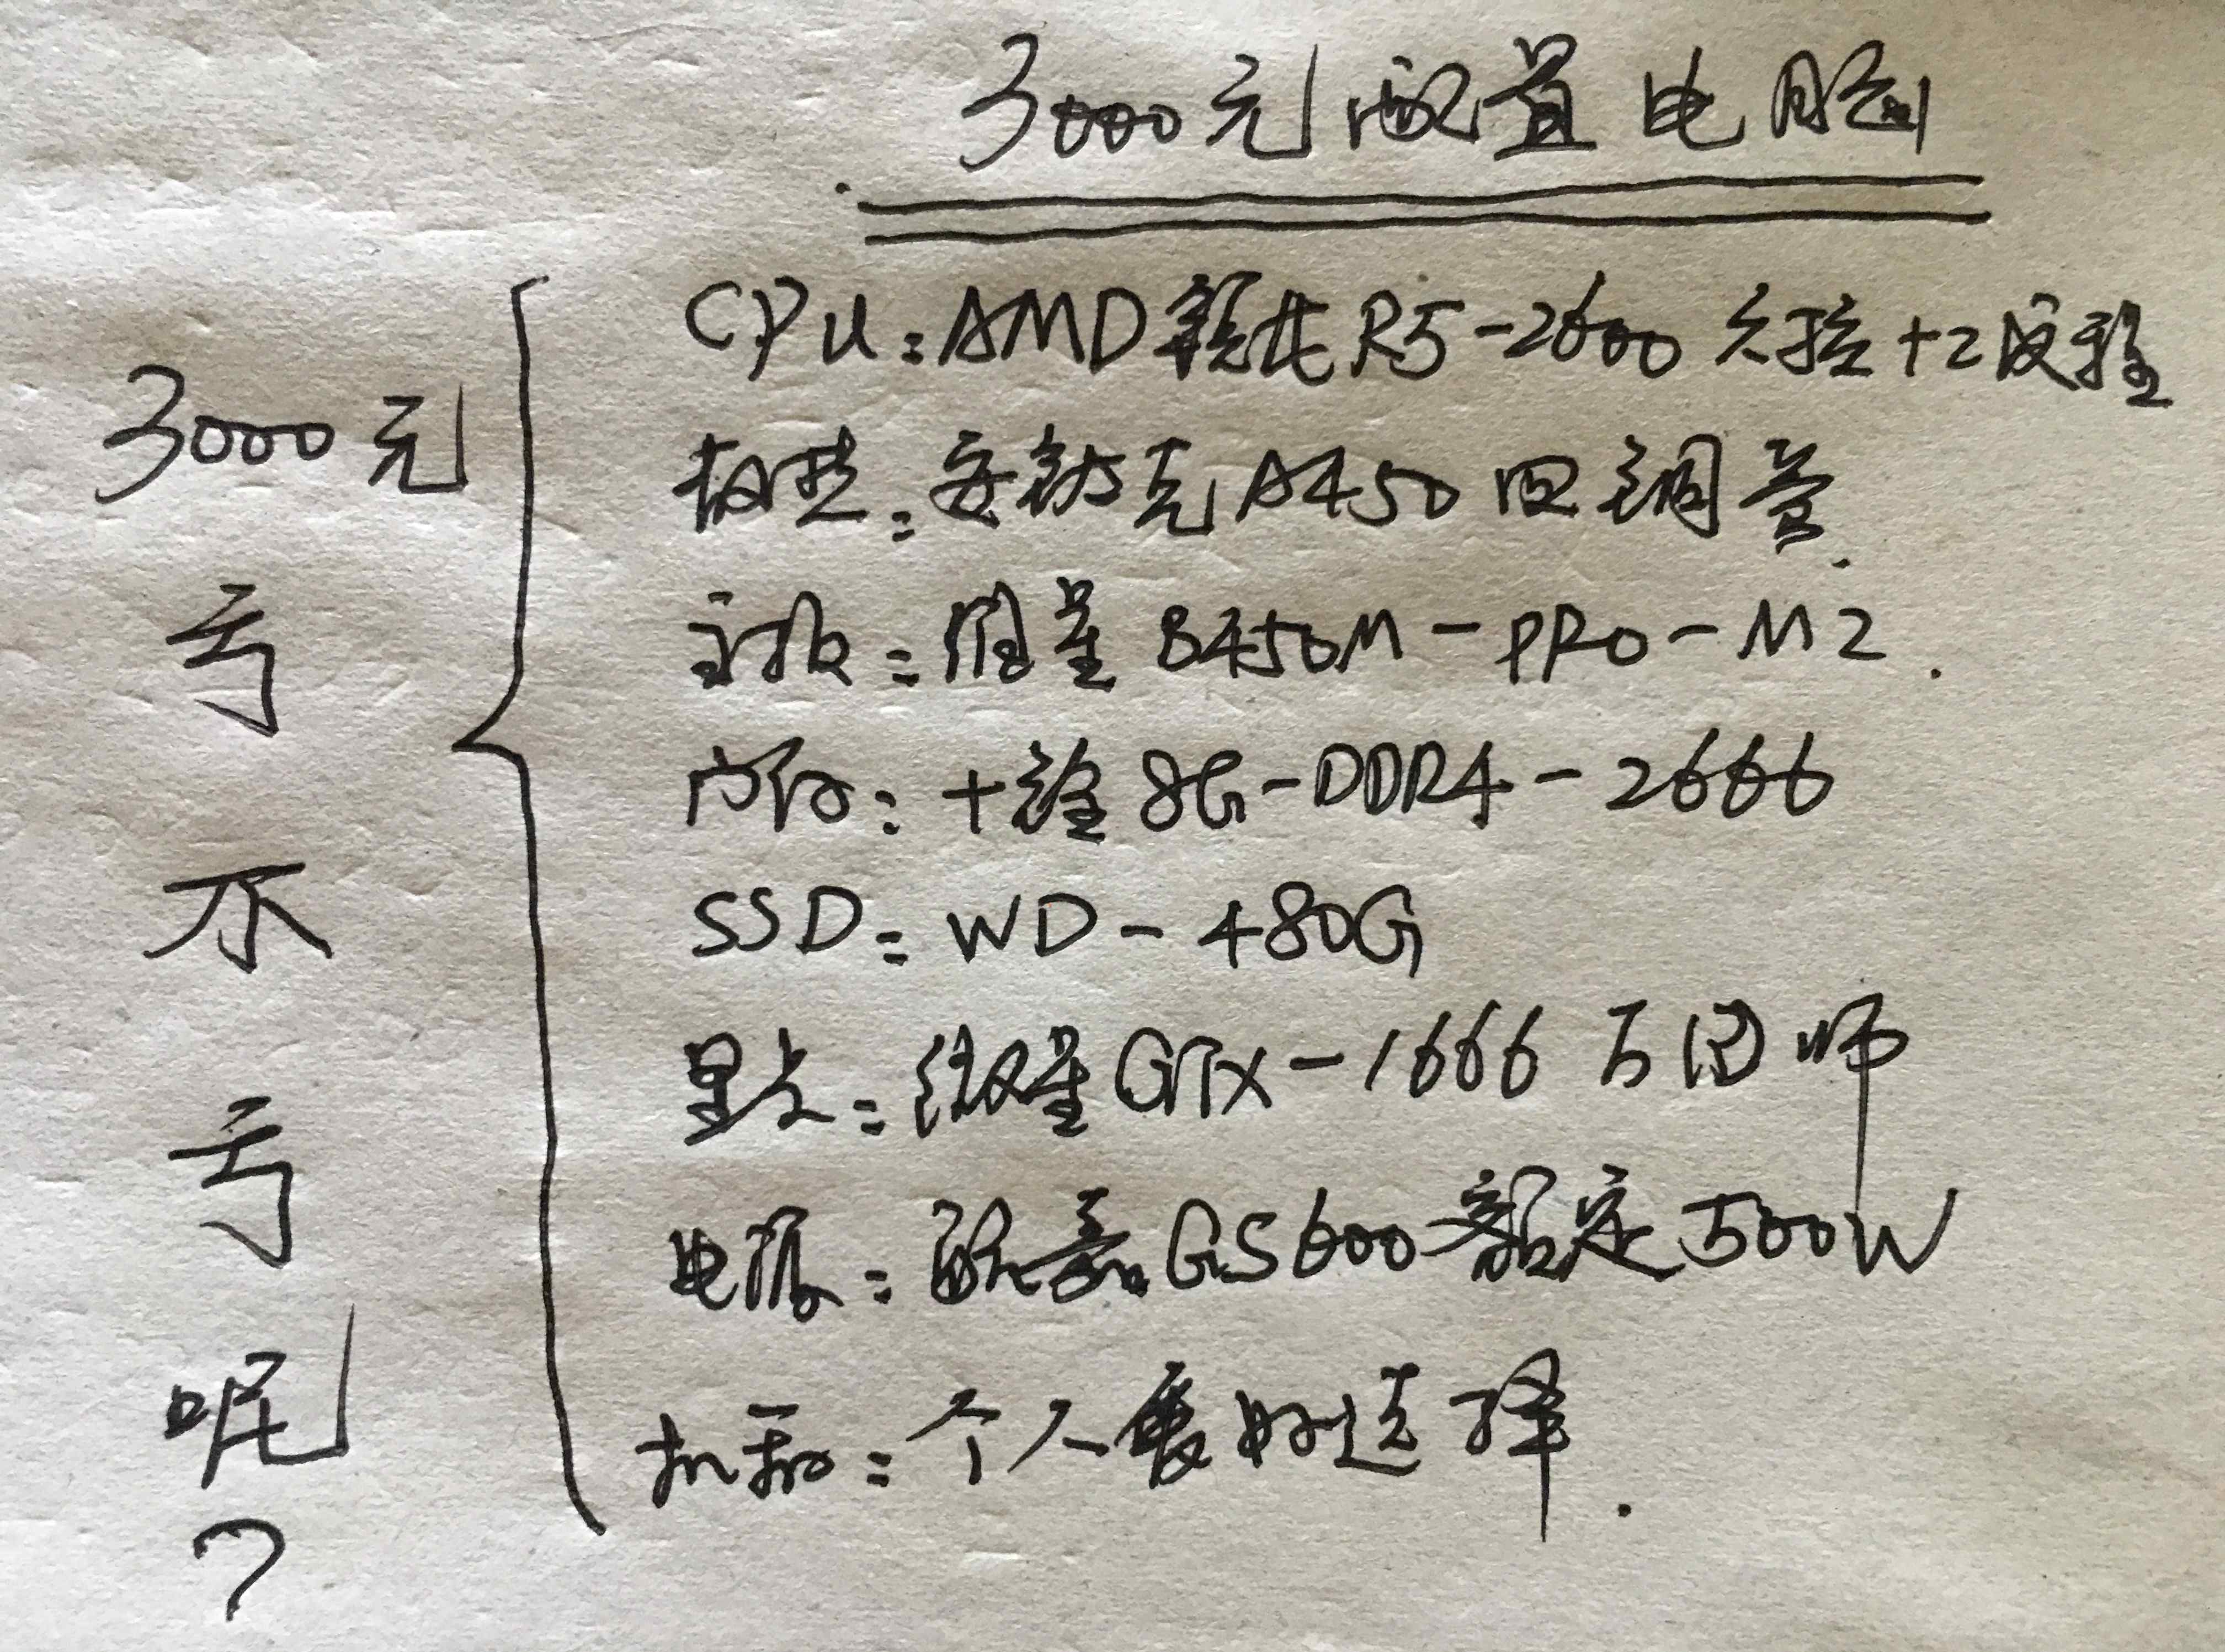 3000元配置电脑
3000元
亏
不
亏
呢
?
CPU:AMD锐龙R5-2600 六核+2线程
散热:安钛克A450四铜管.
主板:微星B450M-PRO-M2.
内存:十铨8G-DDR4-2666
SSD:WD-480G
显卡:微星GTX-1666万图师
电源:航嘉GS600额定500W
机箱:个人喜好选择.